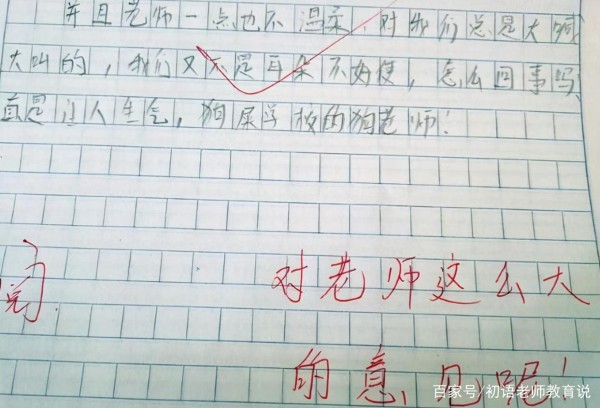 并且老师一点也不温柔，对我们总是大喊
大叫的，我们又不是耳朵不好使，怎么回事吗
直是让人生气，狗屎学校的狗老师！
阅
对老师这么大
的意见呢！
百家号/初语老师教育说